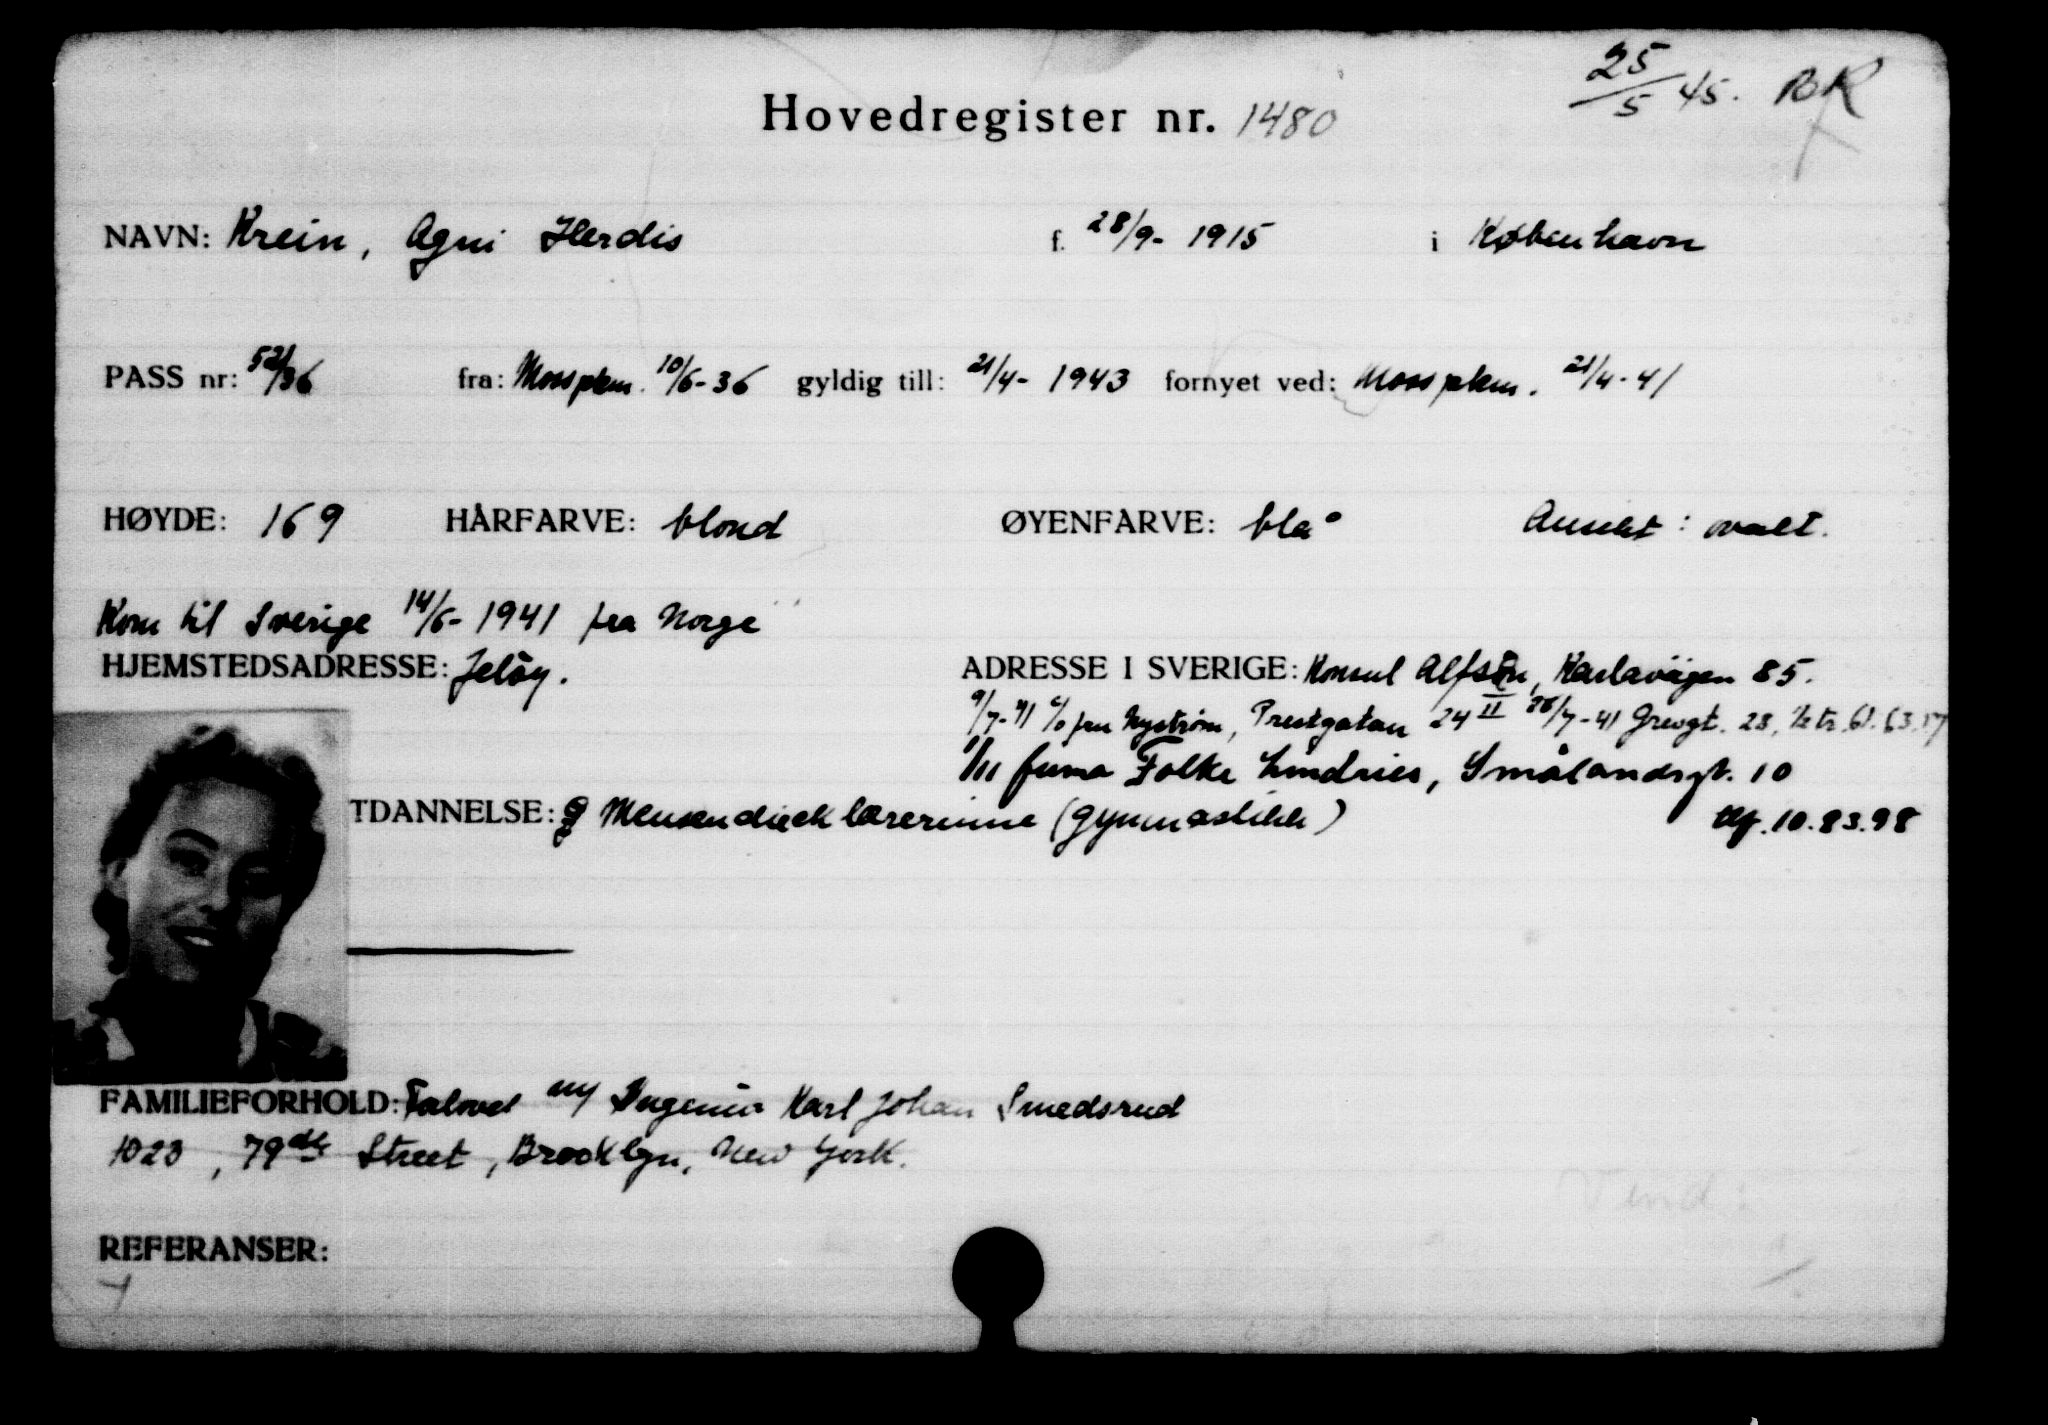 25/5 45. BR
Hovedregister nr. 1480
NAVN: Krein, Agni Herdis f. 28/9- 1915 i København
PASS nr: 52/36 fra: Moss pkm. 10/6-36 gyldig till: 21/4- 1943 fornyet ved: Moss pkm. 21/4-41
HØYDE: 169 HÅRFARVE: blond ØYENFARVE: blå Ansikt: ovalt.
Kom til Sverige 14/6-1941 fra Norge
HJEMSTEDSADRESSE: Jeløy. ADRESSE I SVERIGE: Konsul Alfsen, Karlavägen 85.
9/7-41 c/o fru Nystrøm, Prestgatan 24 II 26/7-41 Grevgt. 28,
1/11 firma Folke Lindries, Smålandsgt. 10
TDANNELSE: Mensendiecklærerinne (gymnastikk) tlf. 10.83.98
FAMILIEFORHOLD: Forlovet m/ Ingeniør Karl Johan Smedsrud
1023, 79de Street, Brooklyn, New York.
Vend:
REFERANSER: